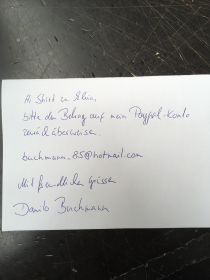 Shirt zu klein,
bitte den Betrag auf mein Paypal-Konto
zurück überweisen.
buchmann_85@hotmail.com
Mit freundlichen Grüssen
Danilo Buchmann